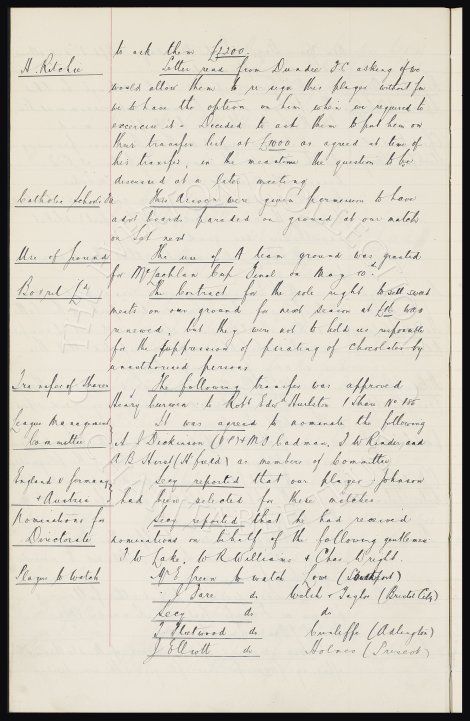 to ask them £1200.
H. Ritchie Letter read from Dundee F.C. asking if we
would allow them to re sign this player without fee
we to have the option on him when we required to
exercise it. Decided to ask them to put him on
their transfer list at £1000 as agreed at time of
his transfer, in the meantime the question to be
discussed at a later meeting
Catholic Schools This were given permission to have
advt boards paraded on ground at our match
on Sat next
Use of ground The use of A team ground was granted
for McLachlan Cup Final on May 10.
The Contract for the sole right to sell sweet
meats on our ground for next season at was
renewed, but they were not to hold us responsible
for the suppression of pirating of chocolates by
unauthorised persons
Transfer of Shares The following transfer was approved
Henry to Robt Edwd 1 Share No 185
League Management It was agreed to nominate the following
Committee A E Dickinson Cadman, and
A B Hurst as members of Committee
England v Germany Secy reported that our player Johnson
& Austria had been selected for these matches
Nominations for Secy reported that he had received
Directorate nominations on behalf of the following gentlemen
T W Lake, W R Williams & Chas Wright.
Players to watch Mr E Green to watch Love (Southport)
" J Fare do Welch & Taylor (Bristol City)
Secy do do
T Fleetwood do Cunliffe (Adlington)
J Elliott do Holmes (Prescot)